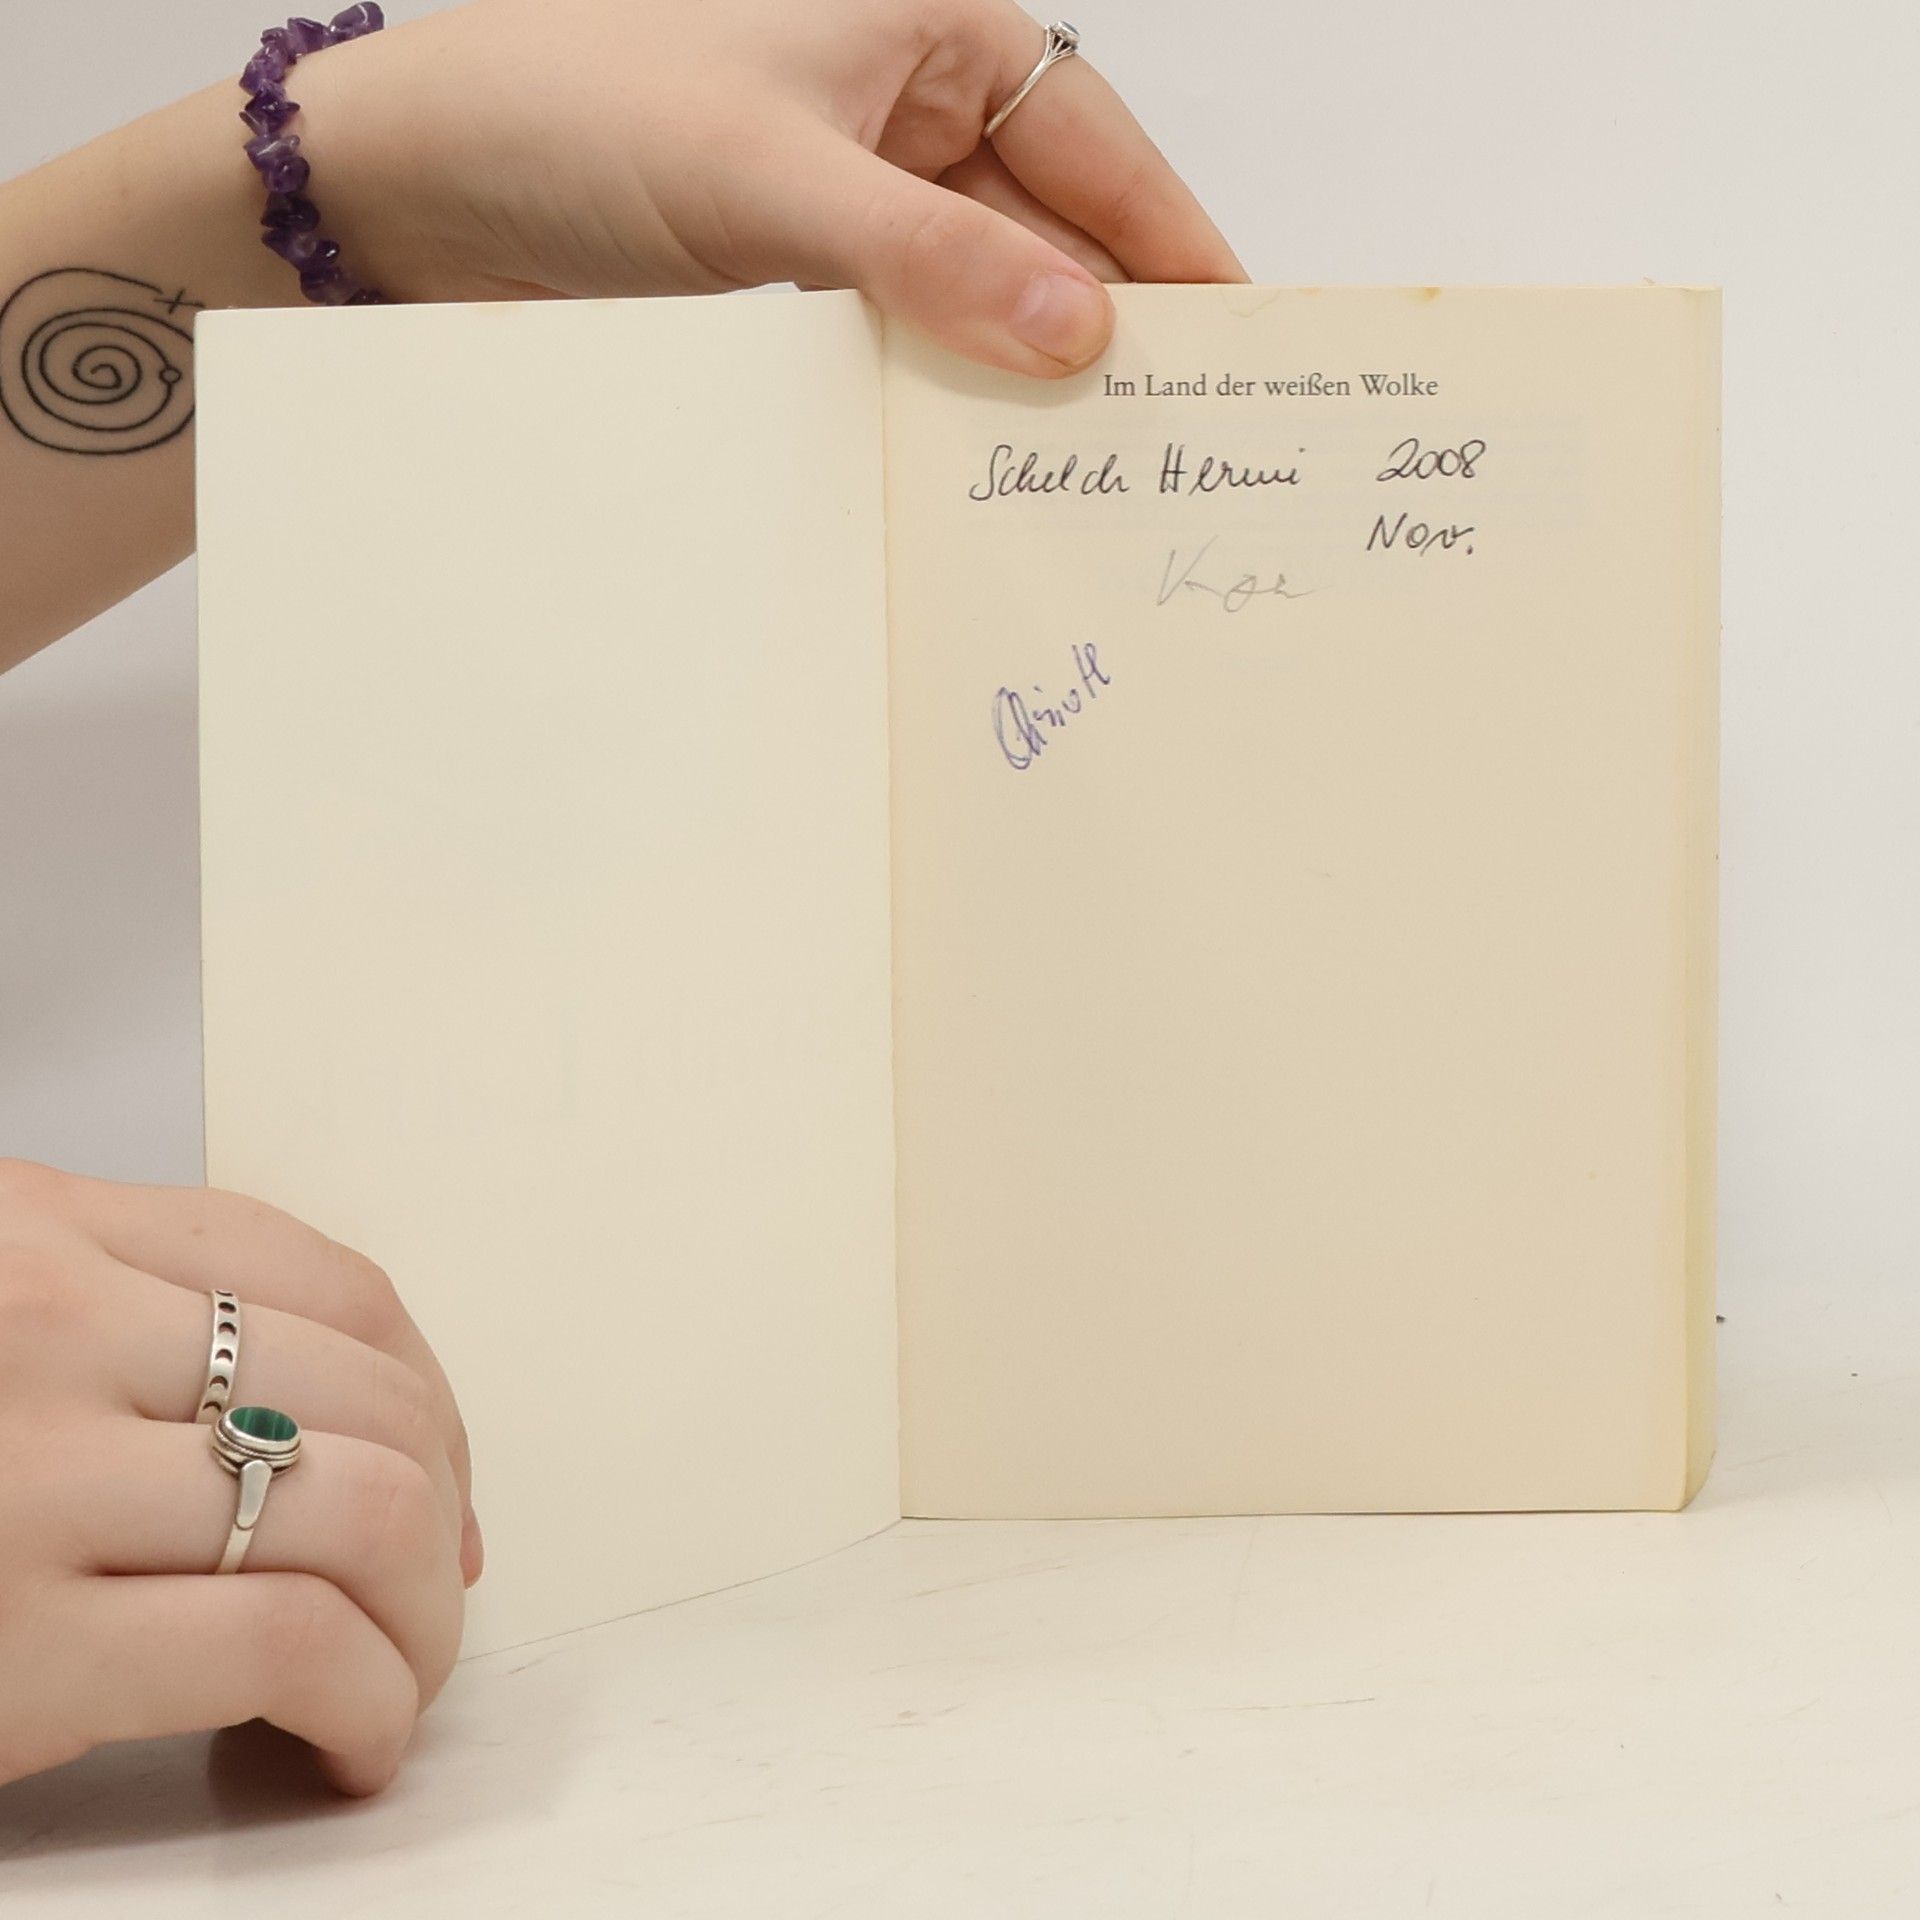 Im Land der weißen Wolke
Schelch Hermi 2008
Nov.